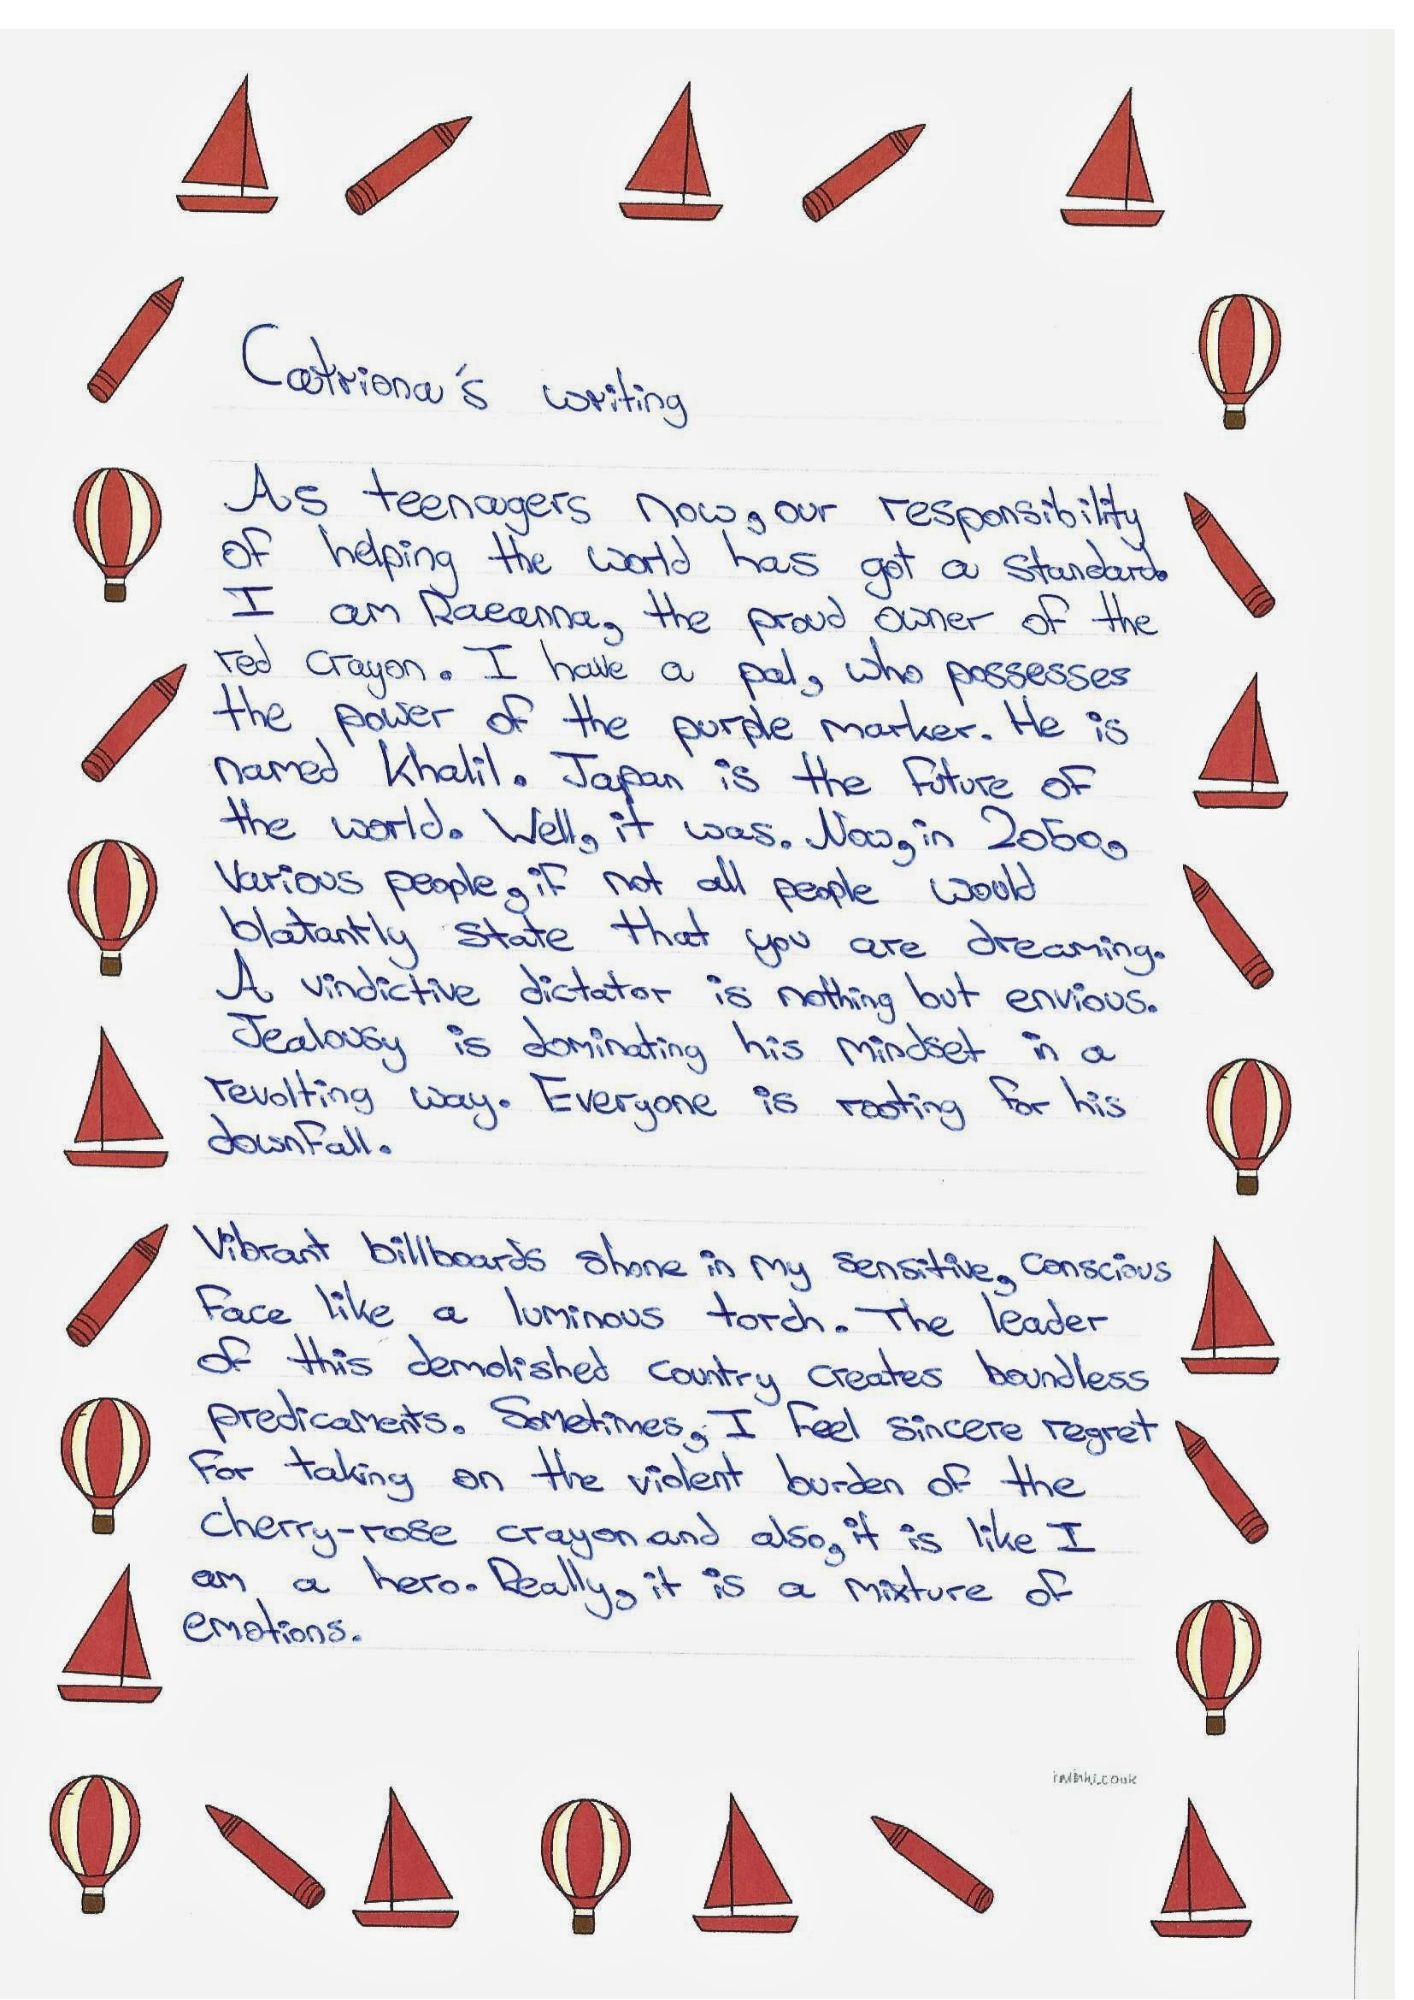 Catriona's writing
As teenagers now, our responsibility
of helping the world has got a standard.
I am Raeanna, the proud owner of the
red crayon. I have a pal, who possesses
the power of the purple marker. He is
named Khalil. Japan is the future of
the world. Well, it was. Now, in 2050,
various people, if not all people would
blatantly state that you are dreaming.
A vindictive dictator is nothing but envious.
Jealousy is dominating his mindset in a
revolting way. Everyone is rooting for his
downfall.
Vibrant billboards shone in my sensitive, conscious
face like a luminous torch. The leader
of this demolished country creates boundless
predicaments. Sometimes, I feel sincere regret
for taking on the violent burden of the
cherry-rose crayon and also, it is like I
am a hero. Really, it is a mixture of
emotions.